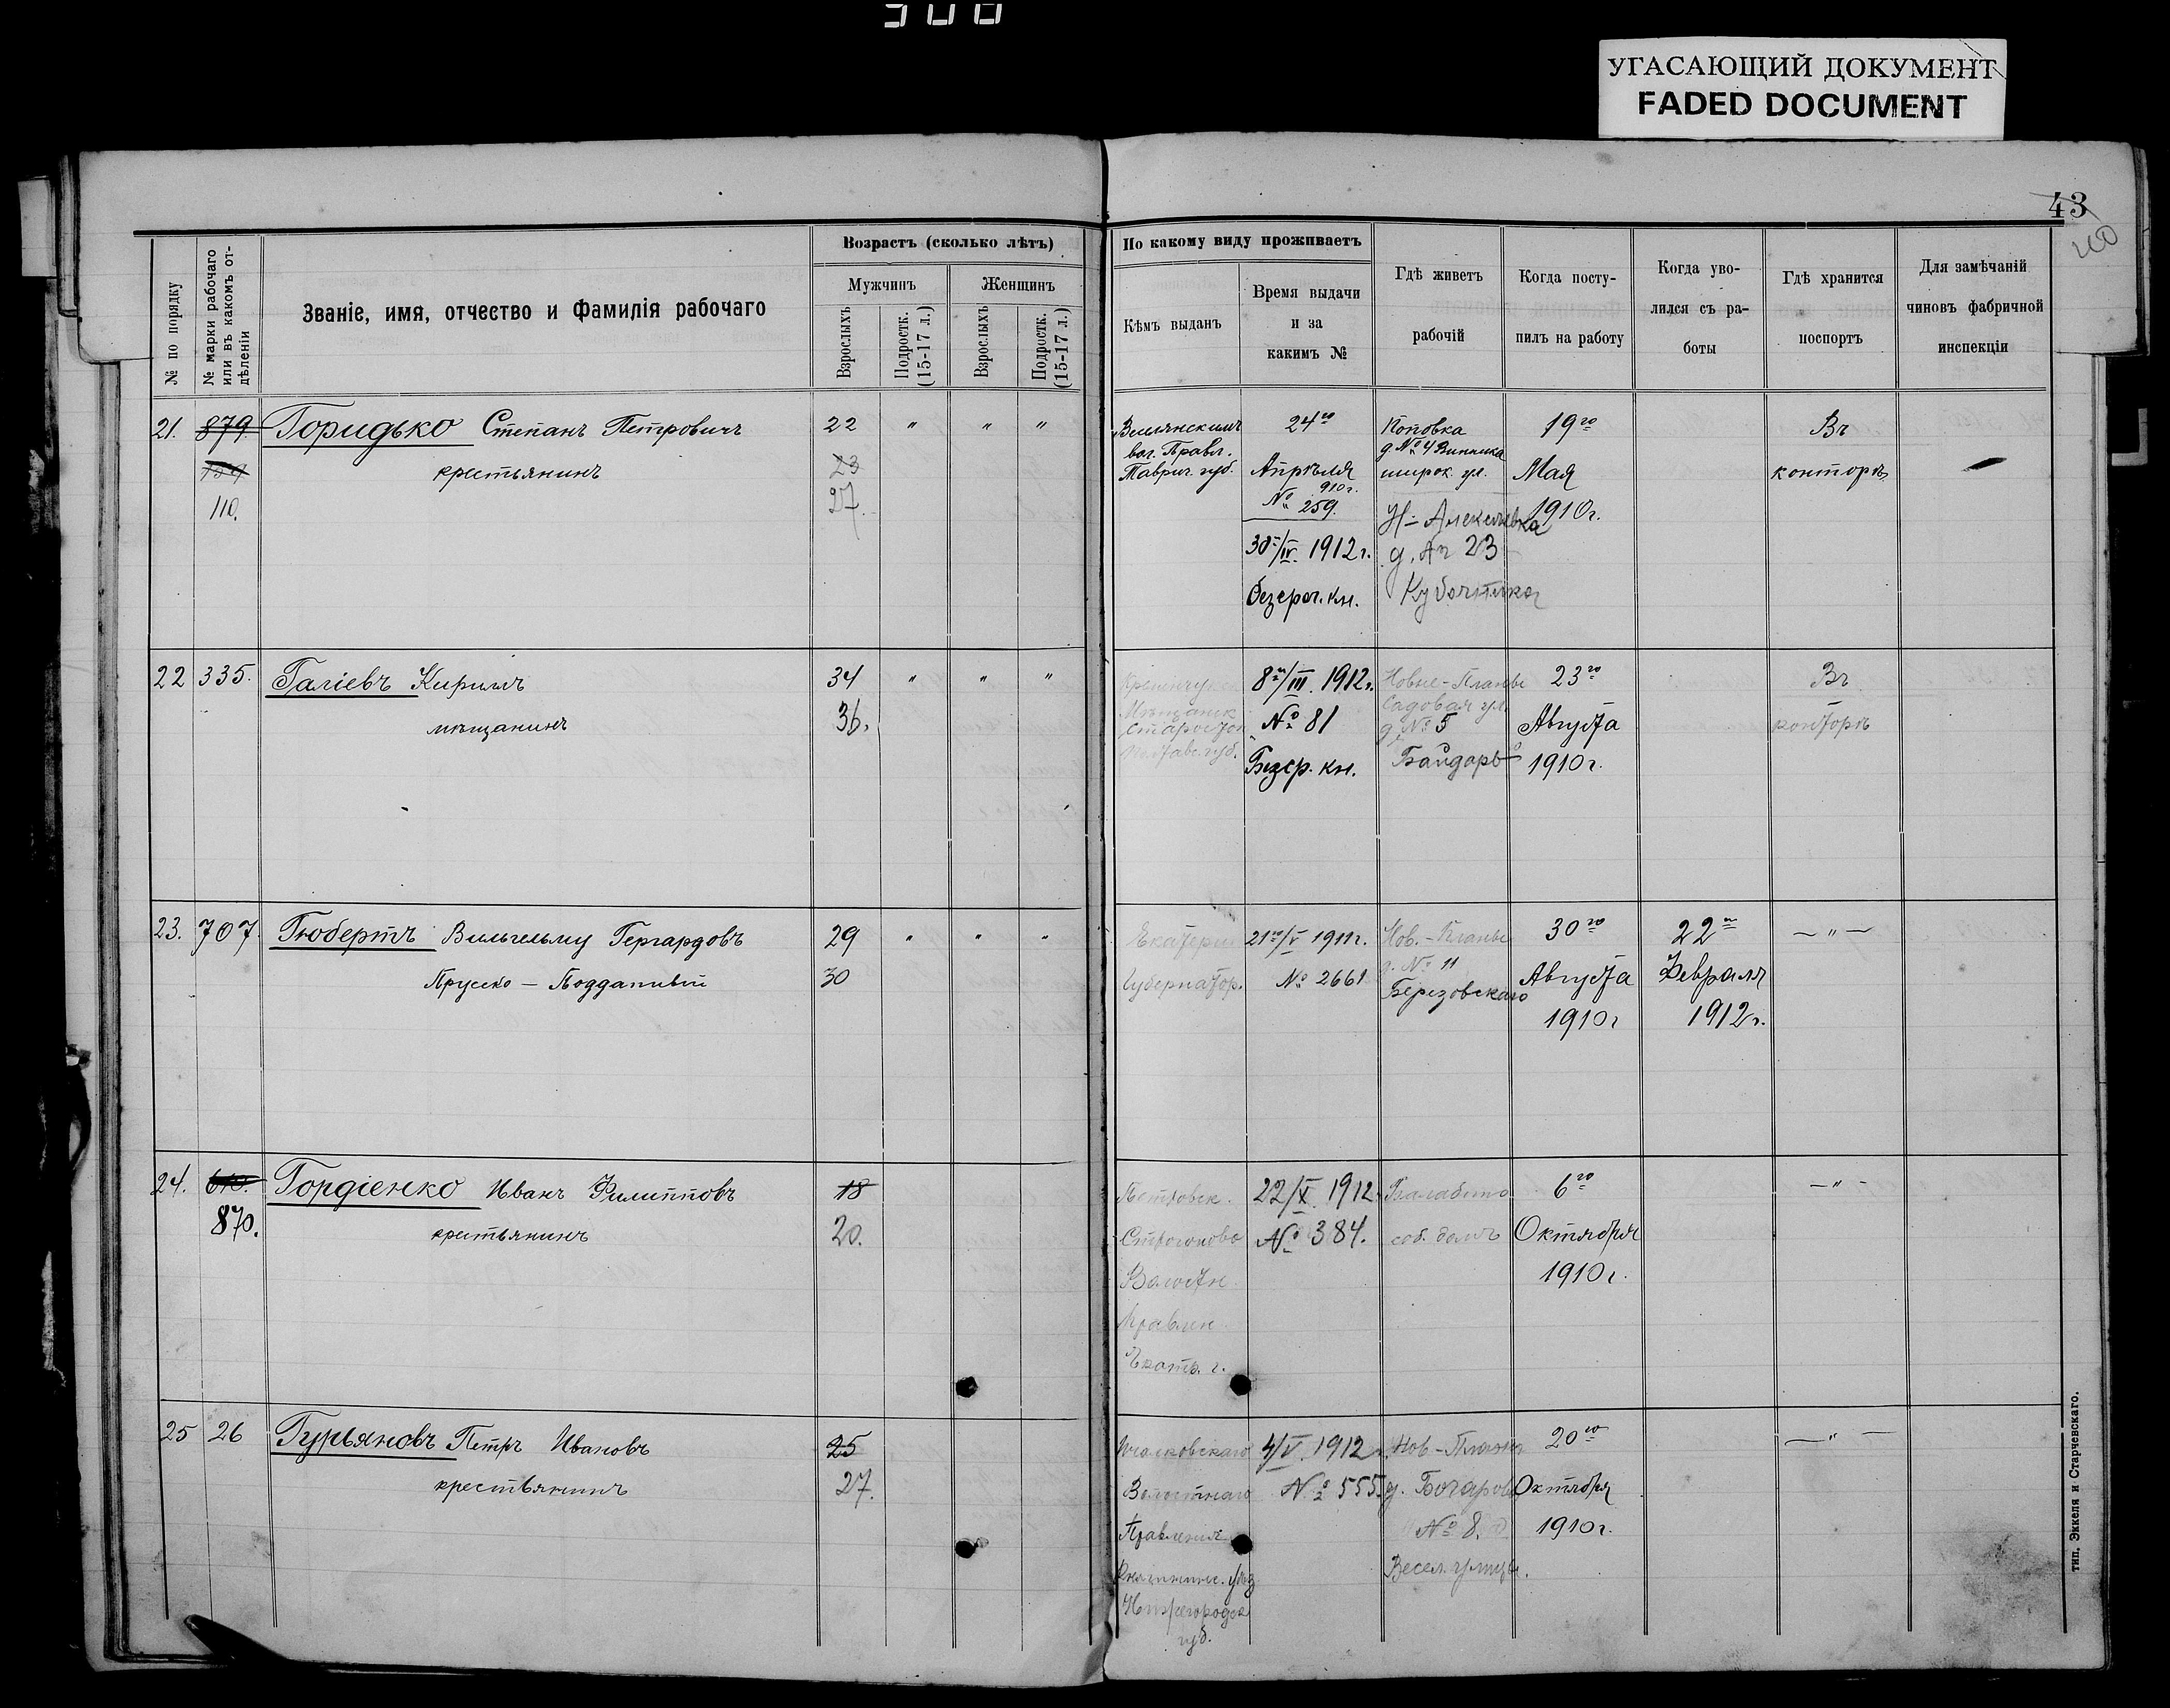 300
УГАСАЮЩИЙ ДОКУМЕНТ
FADED DOCUMENT
43
№ по порядку
№ марки рабочаго или въ какомъ отдѣленіи
Званіе, имя, отчество и фамилія рабочаго
Возрастъ (сколько лѣтъ)
Мужчинъ
Женщинъ
Взрослыхъ
Подростк. (15-17 л.)
Взрослыхъ
Подростк. (15-17 л.)
По какому виду проживаетъ
Кѣмъ выданъ
Время выдачи и за какимъ №
Гдѣ живетъ рабочій
Когда поступилъ на работу
Когда уволился съ работы
Гдѣ хранится паспортъ
Для замѣчаній чиновъ фабричной инспекціи
21. 879. Горидько Степанъ Петровичъ 22 " " "
крестьянинъ 23
110. 27.
вол. Правл.
Таврич. губ.
24го
Апрѣля
910 г.
№ 259.
30/IV. 1912 г.
безсроч. кн.
Поповка
д. № 4 Винника
широк. ул.
Н-Алексѣевка
д. № 23
19го
Мая
1910 г.
Въ
конторѣ
22 335. Галіевъ Кирилъ 34 " " "
мѣщанинъ 36.
Мѣщанск.
Старостой
Полтавс. губ.
8го/III. 1912 г.
№ 81
Безср. кн.
Новые-Планы
Садовая ул.
д. № 5
23го
Августа
1910 г.
Въ
конторѣ
23. 707. Гюбертъ Вильгельму Гергардовъ 29 " " "
Прусско-Подданный 30
Екатерин.
Губернатор.
21го/V 1911 г.
№ 2661
Нов.-Планы
д. № 11
Березовскаго
30го
Августа
1910 г
22го
Февраля
1912 г.
— " —
24. 610. Гордіенко Иванъ Филипповъ 18
870. крестьянинъ 20.
Петровск.
Волостн.
Правлен.
Екатр. г.
22/X. 1912
№ 384.
Балабино
соб. домъ
6го
Октября
1910 г.
— " —
25 26 Гурьяновъ Петръ Ивановъ 25
крестьянинъ 27.
Волостнаго
Правленія
Нижегородск
губ.
4/V. 1912 г.
№ 555.
Нов-Планы
д. Бочарова
№ 8.
Весел. улица.
20го
Октября
1910 г.
— " —
тип. Эккеля и Старчевскаго.